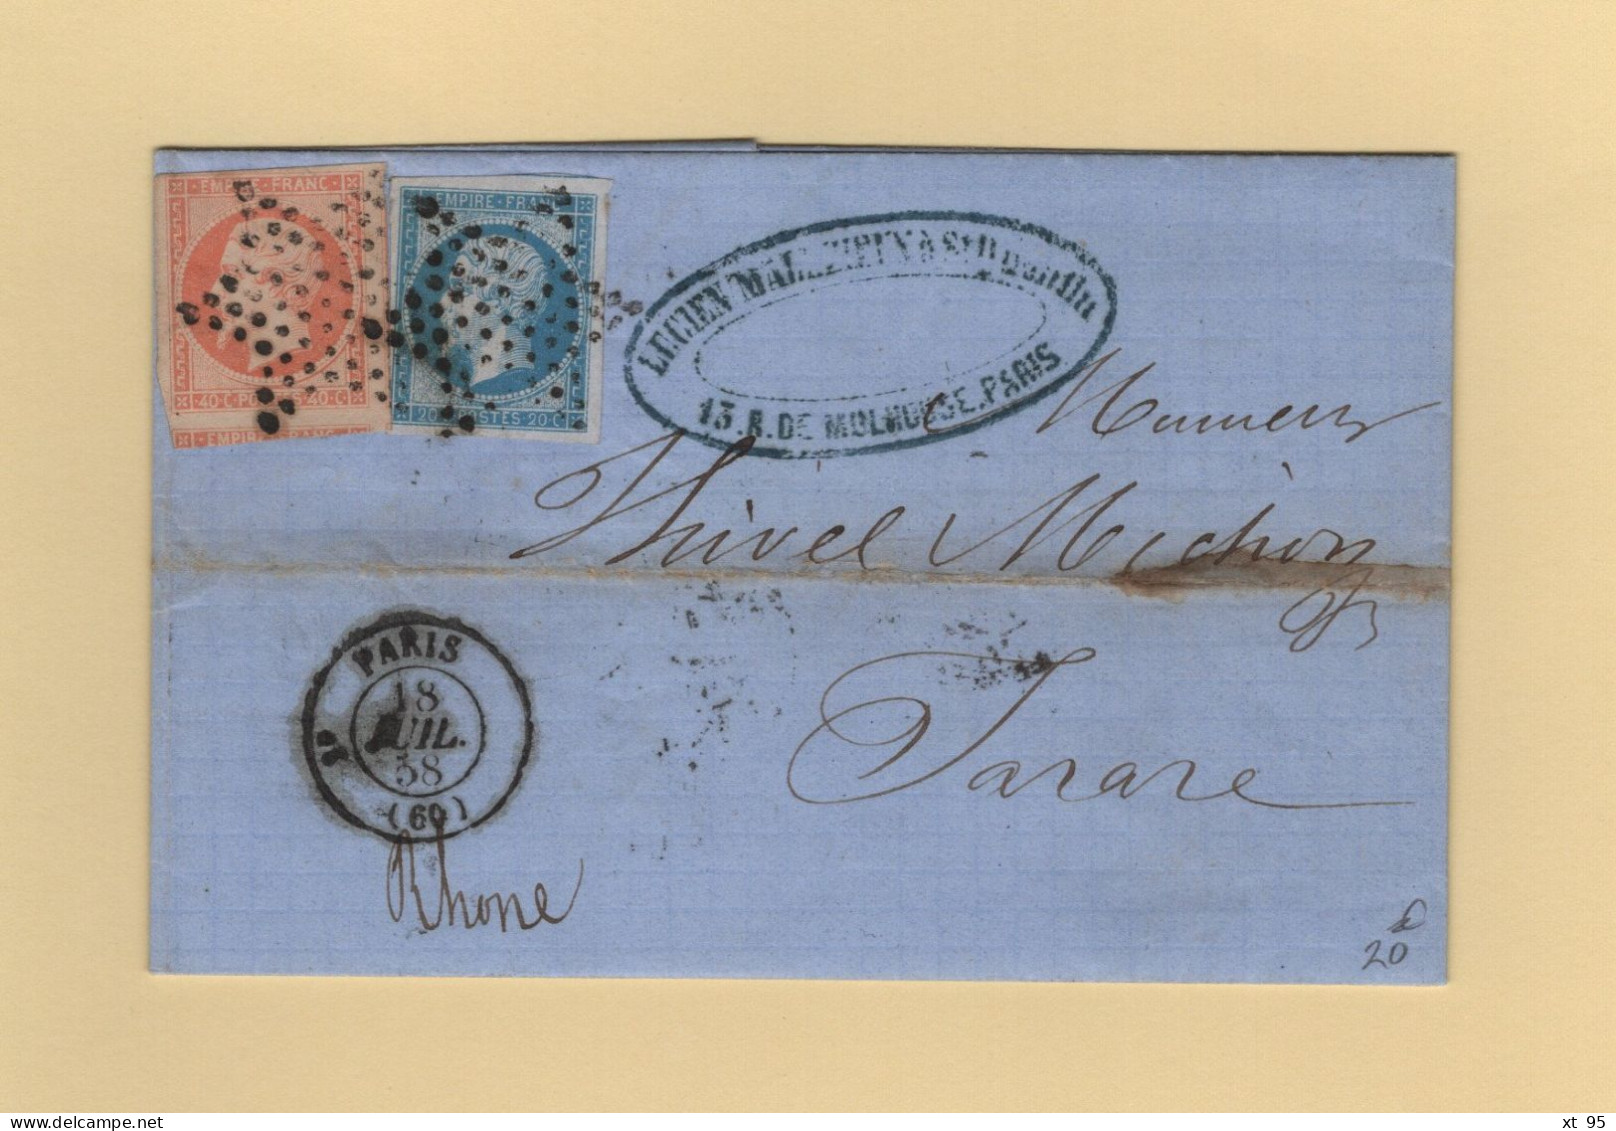 EMPIRE FRANC
40·C·POSTES·40·C
EMPIRE · FRANC
EMPIRE · FRANC
20 POSTES·20·C
LUCIEN
13.R.DE MULHOUSE.PARIS
Messieurs
Thivel Michon
Tarare
PARIS
18
JUIL.
58
(60)
Rhone
20
xt 95